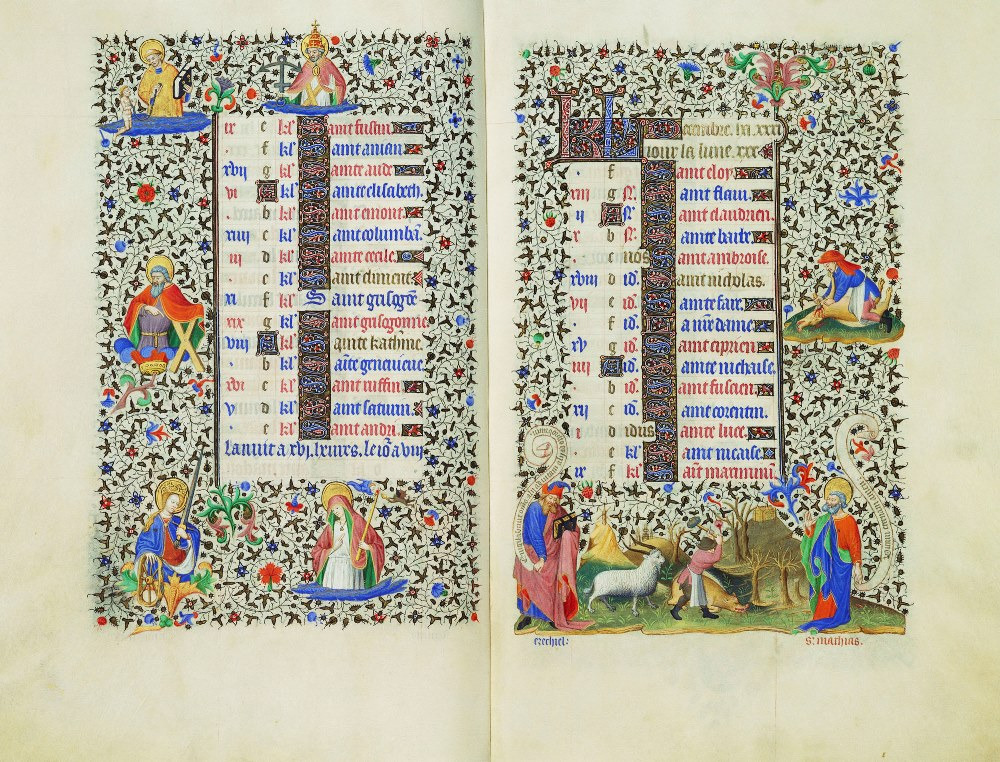 ix e kl' Saint fustin.
f kl' Saint anian.
xvij g kl' Sainte aude
vi A kl' Sainte elisabeth.
b kl' Saint emont.
xiiij c kl' Saint columbā.
iij d kl' Sainte cecile.
e kl' Saint climent
xi f kl' Saint grisogōe
xix g kl' Saint grisogonne.
viij A kl' Sainte katherine.
kl' Saīte genevieve
xvi c kl' Saint ruffin
v d kl' Saint saturn.
e kl' Saint andri.
la nuit a xvj. heures. le io' a viij
KL Decembre. ha. xxxi
iours la lune. xxx.
f Saint eloy.
xiij g N'. Saint flavi.
ij A N'. Saint claudien.
x b N'. Sainte barbe
c nos Saint ambroise.
xviij d id'. Saint nicholas.
vij e id'. Sainte fare.
f id'. La nr̄e dame.
xv g id'. Saint ciprien.
iiij A id'. Sainte nichaise.
b id'. Saint fuscien.
xij c id'. Saint corentin.
i d idus Sainte luce.
e kl' Saint nicaise.
ix f kl' Saīt maximini.
ezechiel:
S: mathias.